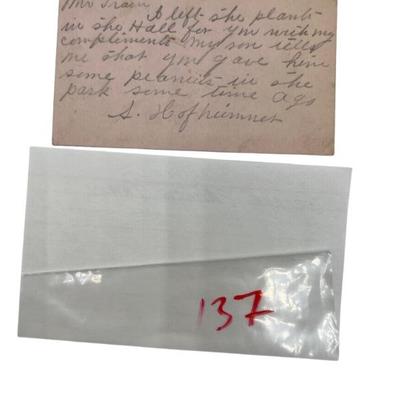 Mr Train,
I left the plants
in the Hall for you with my
compliments my son tells
me that you gave him
some peanuts in the
park some time ago
S. Hofheimner
137